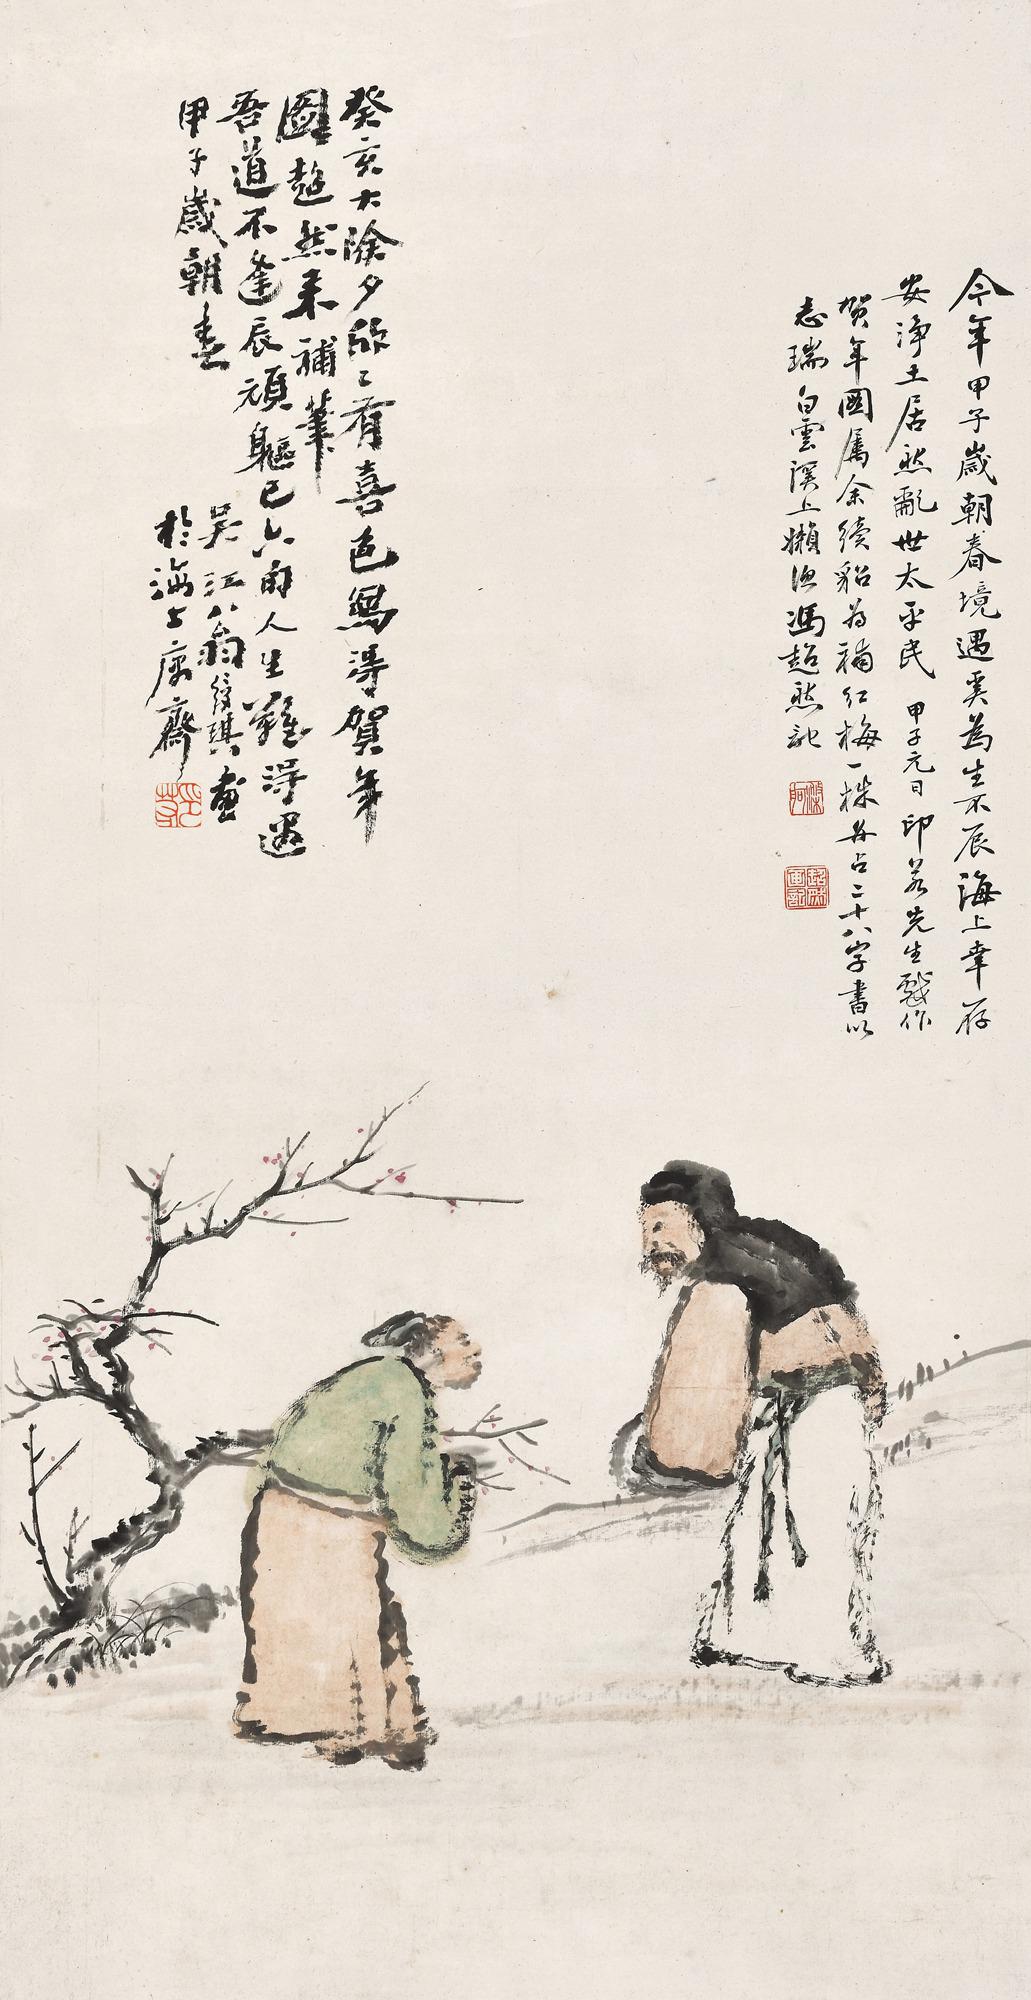 今年甲子歲朝春境遇奚為生不辰海上幸存
安淨土居然亂世太平民 甲子元日印若先生戲作
賀年圖屬余續貂為補紅梅一株并占二十八字書以
志瑞 白雲溪上懶漁馮超然記
癸亥大除夕欣〻有喜色寫得賀年
圖超然來補筆
吾道不逢辰頑軀已六旬人生難得遇
甲子歲朝春
吳江八翁綬琪畫
於海上廉齋